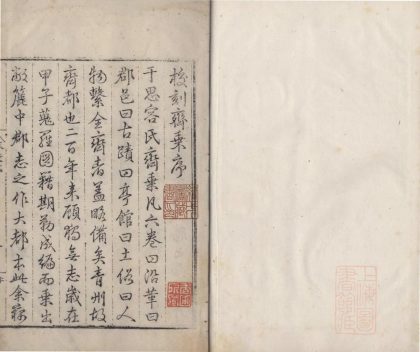 校刻齊乗序
于思容氏齊乗凡六卷曰沿革曰
郡邑曰古蹟曰亭館曰土俗曰人
物繫全齊者蓋略備矣青州故
齊都也二百年來顧獨無志歲在
甲子蒐羅圖籍期勒成編而乗出
敝簏中郡志之作大都本此余